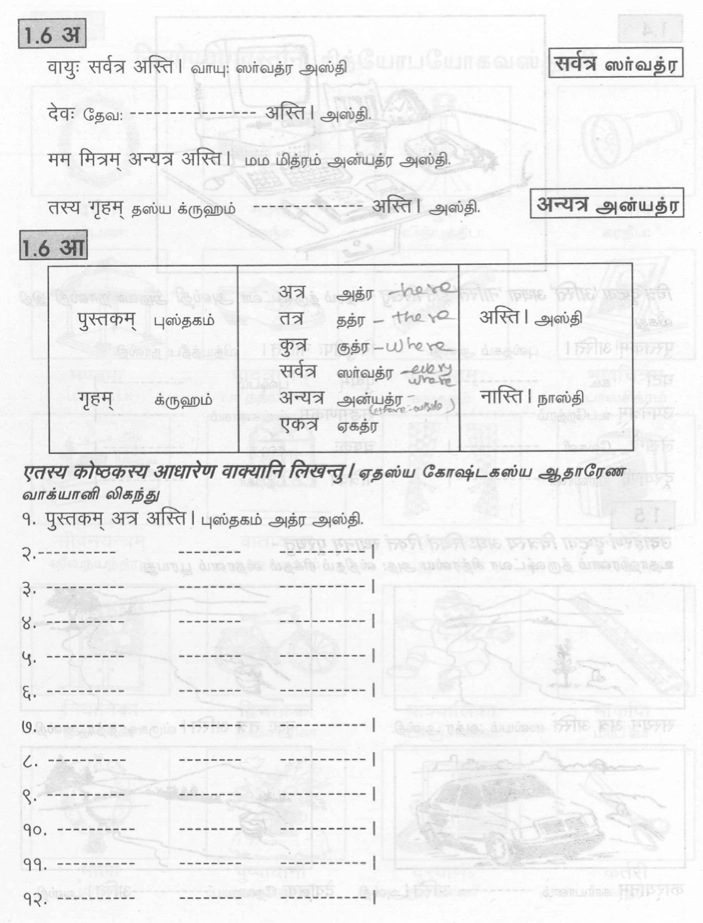 1.6 अ
वायुः सर्वत्र अस्ति। வாயு: ஸர்வத்ர அஸ்தி
सर्वत्र ஸர்வத்ர
देवः தேவ: ---------------- अस्ति। அஸ்தி.
मम मित्रम् अन्यत्र अस्ति। மம மித்ரம் அன்யத்ர அஸ்தி.
तस्य गृहम् தஸ்ய க்ருஹம் -------------- अस्ति। அஸ்தி.
अन्यत्र அன்யத்ர
1.6 आ
अत्र அத்ர - here
पुस्तकम् புஸ்தகம் तत्र தத்ர - there अस्ति। அஸ்தி
कुत्र குத்ர - where
सर्वत्र ஸர்வத்ர - every where
गृहम् க்ருஹம் अन्यत्र அன்யத்ர - नास्ति। நாஸ்தி
एकत्र ஏகத்ர
एतस्य कोष्ठकस्य आधारेण वाक्यानि लिखन्तु। ஏதஸ்ய கோஷ்டகஸ்ய ஆதாரேண
வாக்யானி லிகந்து
१. पुस्तकम् अत्र अस्ति। புஸ்தகம் அத்ர அஸ்தி.
२.---------- -------- -----------।
३. ---------- -------- -----------।
४. ---------- -------- -----------।
५. ---------- -------- -----------।
६. ---------- -------- -----------।
७. ---------- -------- -----------।
८. ---------- -------- -----------।
९. ---------- -------- -----------।
१०. ---------- -------- -----------।
११. ---------- -------- -----------।
१२. ---------- -------- -----------।